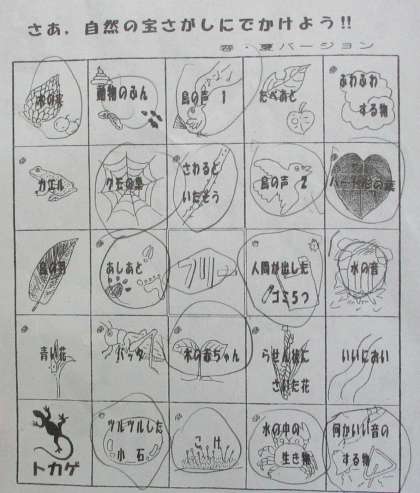 さあ，自然の宝さがしにでかけよう！！
春・夏バージョン
木の実
動物のふん
鳥の声 1
たべあと
ふわふわ
する物
カエル
クモの巣
さわると
いたそう
鳥の声 2
ハート形の葉
鳥の羽
あしあと
フリー
人間が出した
ゴミ5つ
水の音
青い花
バッタ
木の赤ちゃん
らせん状に
さいた花
いいにおい
トカゲ
ツルツルした
小石
こけ
水の中の
生き物
何かいい音の
する物